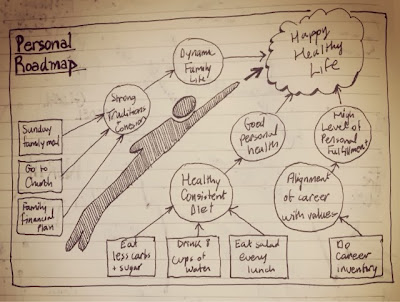 Personal
Roadmap
Dynamic
Family
Life
Happy
Healthy
Life
Strong
Traditions
+
Cohesion
Sunday
family meal
Go to
Church
Family
financial
plan
Good
personal
health
High
Level of
Personal
Fulfillment
Healthy
Consistent
Diet
Alignment
of career
with values
Eat
less carbs
+ sugar
Drink 8
cups of
water
Eat salad
every
lunch
Do
career
inventory